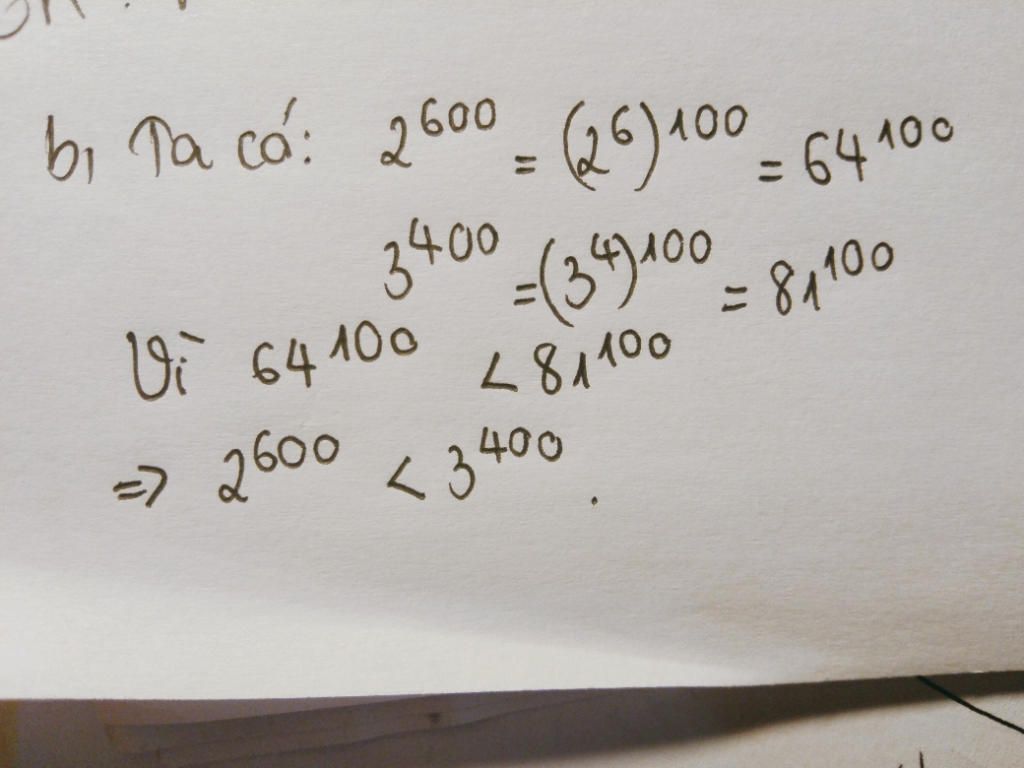 b, Ta có: 2^600 = (2^6)^100 = 64^100
3^400 = (3^4)^100 = 81^100
Vì 64^100 < 81^100
=> 2^600 < 3^400.